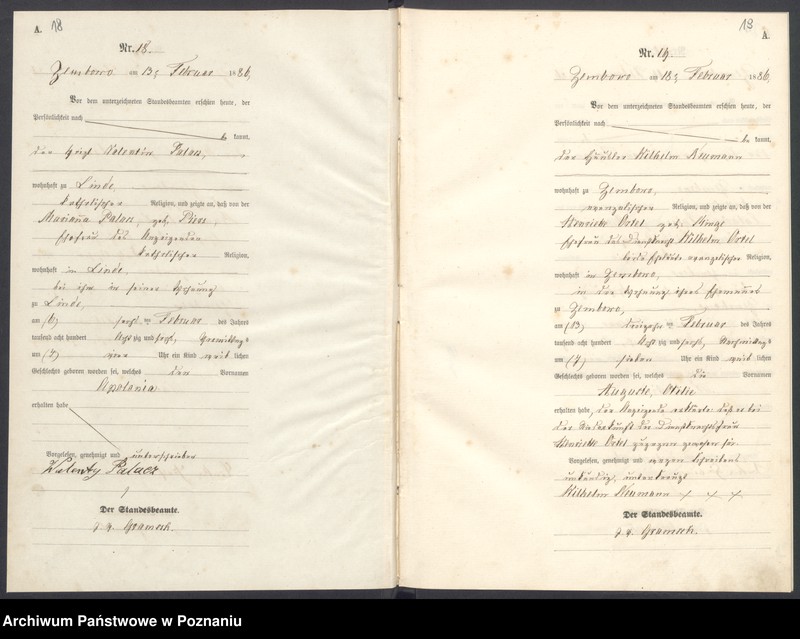 A. 18
Nr. 18.
Zembowo am 13. Februar 1886.
Vor dem unterzeichneten Standesbeamten erschien heute, der
Persönlichkeit nach
be kannt,
der Valentin Palacz,
wohnhaft zu Linde,
katholischer Religion, und zeigte an, daß von der
Marianna Palacz, geb.
Ehefrau des Anzeigenden
katholischer Religion,
wohnhaft in Linde,
bei ihm in seiner Wohnung
zu Linde,
am (6) Februar des Jahres
tausend acht hundert acht zig und sechs, Vormittags
um (7) Uhr ein Kind weib lichen
Geschlechts geboren worden sei, welches den Vornamen
Apolonia
erhalten habe
Vorgelesen, genehmigt und unterschrieben
Walenty Palacz
Der Standesbeamte.
19
A.
Nr. 19.
Zembowo am 18. Februar 1886.
Vor dem unterzeichneten Standesbeamten erschien heute, der
Persönlichkeit nach
be kannt,
der Häusler Wilhelm Neumann
wohnhaft zu Zembowo,
evangelischer Religion, und zeigte an, daß von der
Henriette Ortel geb.
Ehefrau des Dienstknecht Wilhelm Ortel
beide Eheleute evangelischer Religion,
wohnhaft in Zembowo,
in der Wohnung ihres Ehemannes
zu Zembowo,
am (13) dreizehn ten Februar des Jahres
tausend acht hundert acht zig und sechs, Nachmittags
um (7) sieben Uhr ein Kind weib lichen
Geschlechts geboren worden sei, welches die Vornamen
Auguste, Otilie
erhalten habe, der Anzeigende erklärte daß er bei
der Niederkunft der Dienstknechtsfrau
Henriette Ortel zugegen gewesen sei
Vorgelesen, genehmigt und wegen Schreibens
unkundig, unterkreuzt
Wilhelm Neumann × × ×
Der Standesbeamte.
Archiwum Państwowe w Poznaniu